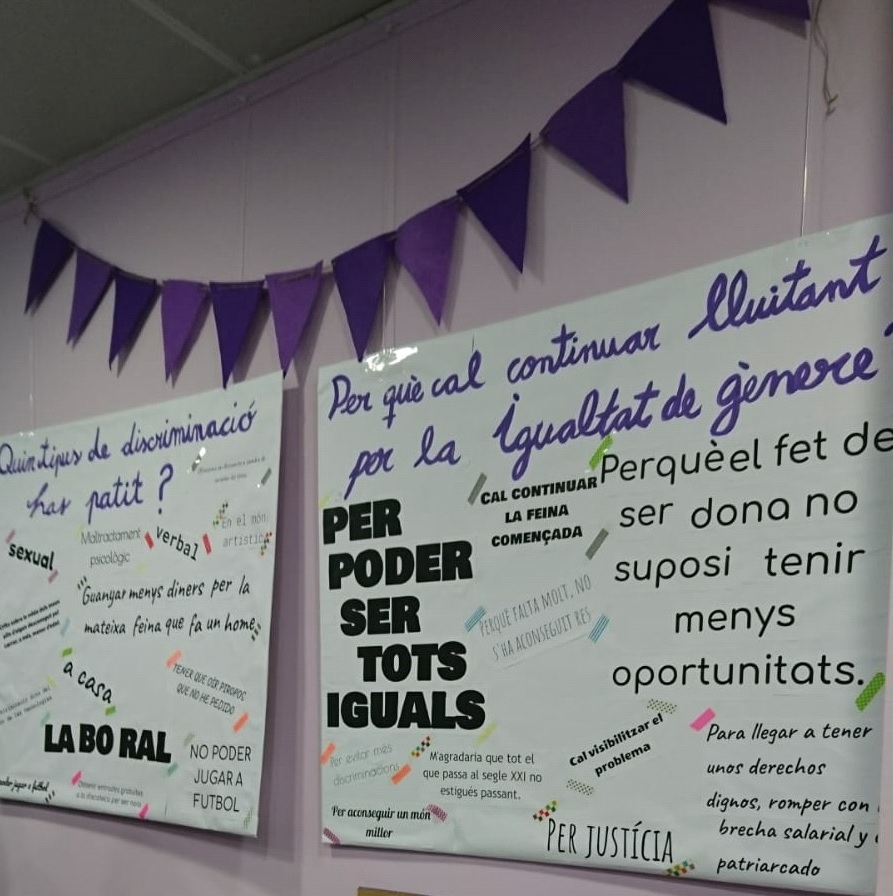 Quin tipus de discriminació
has patit ?
sexual
Maltractament
psicològic
verbal
En el món
artístic
"Guanyar menys diners per la
mateixa feina que fa un home"
a casa
TENER QUE OIR PIROPOS
QUE NO HE PEDIDO
LABORAL
NO PODER
JUGAR A
FUTBOL
Per què cal continuar lluitant
por la igualtat de gènere
PER
PODER
SER
TOTS
IGUALS
CAL CONTINUAR
LA FEINA
COMENÇADA
PERQUÈ FALTA MOLT, NO
S'HA ACONSEGUIT RES
Perquè el fet de
ser dona no
suposi tenir
menys
oportunitats.
Per evitar més
discriminacions
M'agradaria que tot el
que passa al segle XXI no
estigués passant.
Cal visibilitzar el
problema
Per aconseguir un món
millor
PER JUSTÍCIA
Para llegar a tener
unos derechos
dignos, romper con
brecha salarial y
patriarcado